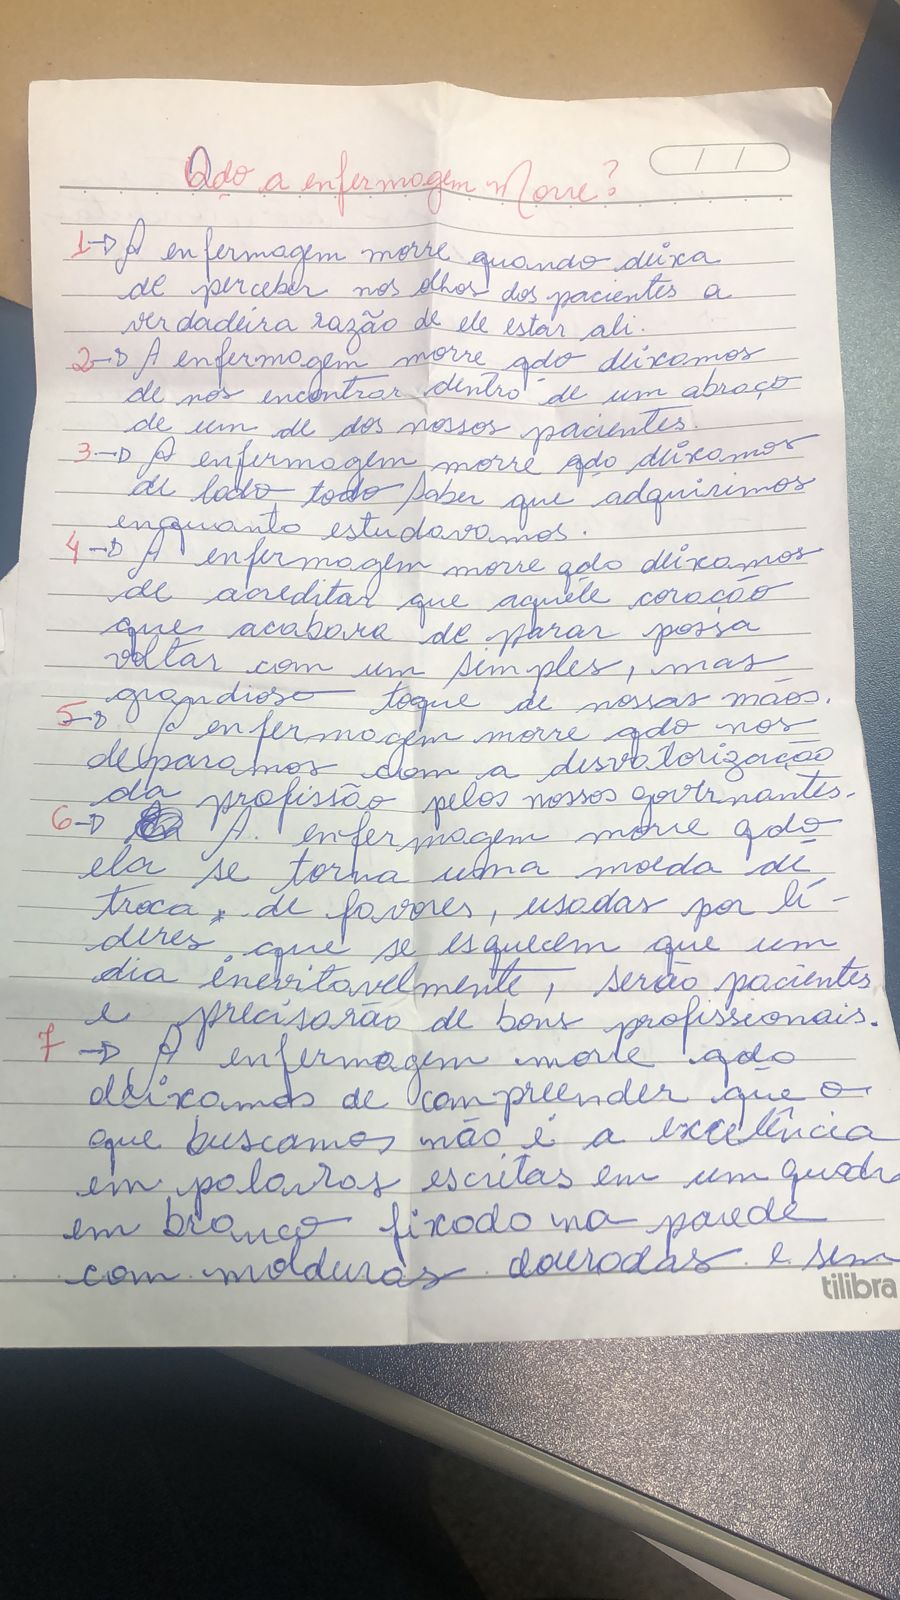 Qdo a enfermagem Morre?
1→ A enfermagem morre quando deixa
de perceber nos olhos dos pacientes a
verdadeira razão de ele estar ali.
2→ A enfermagem morre qdo deixamos
de nos encontrar dentro de um abraço
de um de dos nossos pacientes.
3→ A enfermagem morre qdo deixamos
de lado todo saber que adquirimos
enquanto estudavamos.
4→ A enfermagem morre qdo deixamos
de acreditar que aquele coração
que acabara de parar possa
voltar com um simples, mas
grandioso toque de nossas mãos.
5→ A enfermagem morre qdo nos
deparamos com a desvalorização
da profissão pelos nossos governantes.
6→ A enfermagem morre qdo
ela se torna uma moeda de
troca de favores, usadas por lí-
deres que se esquecem que um
dia inevitavelmente, serão pacientes
e precisarão de bons profissionais.
7→ A enfermagem morre qdo
deixamos de compreender que o
que buscamos não é a excelência
em palavras escritas em um quadro
em branco fixado na parede
com molduras douradas e sem
tilibra